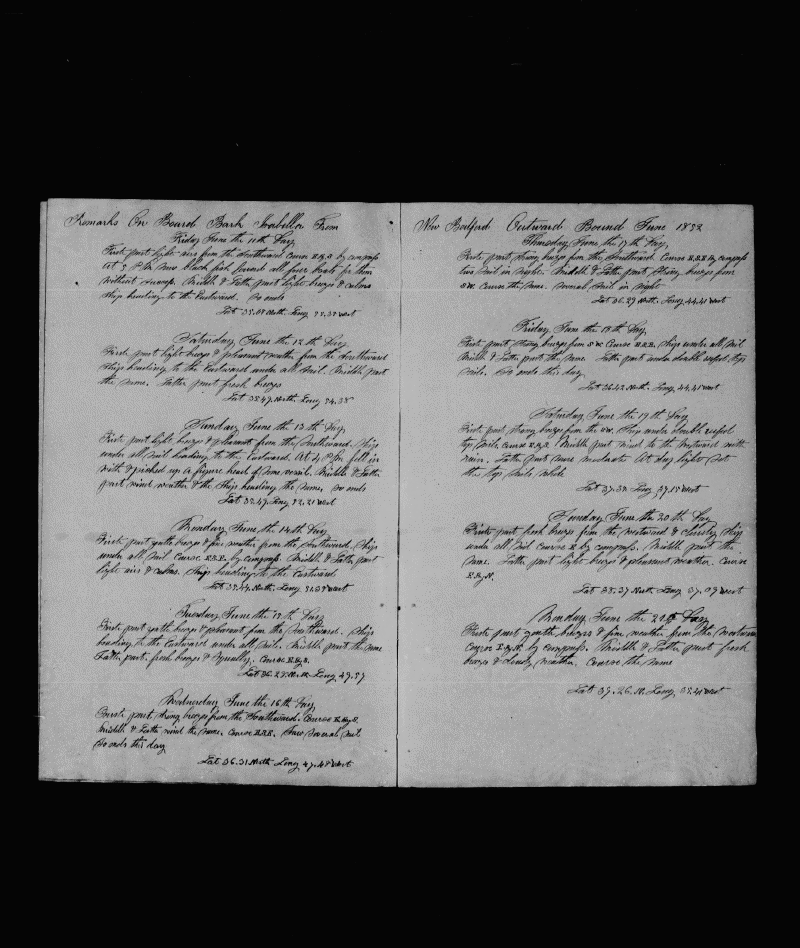 Remarks On Board Bark Isabella From
Friday June the 11th Day
First part light airs from the Southward Course E.b.S by compass
At 5 P.M. saw black fish lowered all four boats for them
without success. Middle & Latter part light breeze & calms
Ship heading to the Eastward. So ends
Lat 35.08 North. Long West
Saturday, June the 12th Day
First part light breeze & pleasant weather from the Southward
Ship heading to the Eastward under all sail. Middle part
the same. Latter part fresh breeze
Lat 35.47. North. Long 54.38
Sunday June the 13th Day,
First part light breeze & pleasant from the Southward. Ship
under all sail heading to the Eastward. At 4 P.M. fell in
with & picked up a figure head of some vessel. Middle & Latter
part wind weather & the Ship heading the same, so ends
Lat 35.47. Long 52.21 West
Monday June the 14th Day
First part gentle breeze & fine weather from the Southward. Ship
under all sail Course E.S.E. by compass. Middle & Latter part
light airs & calms. Ship heading to the Eastward
Lat 35.44. North. Long 51.39 West
Tuesday June the 15th Day
First part gentle breeze & pleasant from the Southward. Ship
heading to the Eastward under all sail. Middle part the same
Latter part. fresh breeze & squally. Course E.b.S.
Lat 36.28. North. Long 49.57
Wednesday June the 16th Day
First part strong breeze from the Southward. Course E.b.S.
Middle & Latter wind the same. Course E.S.E. Saw several sail
So ends this day
Lat 36.31 North Long 47.48 West
New Bedford Outward Bound June 1852
Thursday June the 17th Day,
First part strong breeze from the Southward Course E.S.E by compass
two sail in sight. Middle & Latter part strong breeze from
SW. Course the same. several sail in sight
Lat 36.29 North. Long 44.41 West
Friday June the 18th Day,
First part strong breeze from SW. Course E.S.E. Ship under all sail
Middle & Latter parts the same. Latter part under double reefed top
sails. So ends this day
Lat 36.42 North. Long 44.41 West
Saturday June the 19th Day
First part strong breeze from the SW. Ship under double reefed
top sails, Course E.b.S. Middle part wind to the Westward with
rain. Latter part more moderate At day light set
the top sails whole
Lat 37.32 Long 39.15 West
Sunday June the 20th Day
First part fresh breeze from the Westward & cloudy Ship
under all sail Course E. by compass. Middle part the
same. Latter part light breeze & pleasant weather. Course
E.b.N.
Lat 38.37 North Long 37.09 West
Monday June the 21st Day
First part gentle breeze & fine weather from the Westward
Course E.b.N. by compass. Middle & Latter part fresh
breeze & cloudy weather. Course the same
Lat 39.26. N. Long 35.41 West